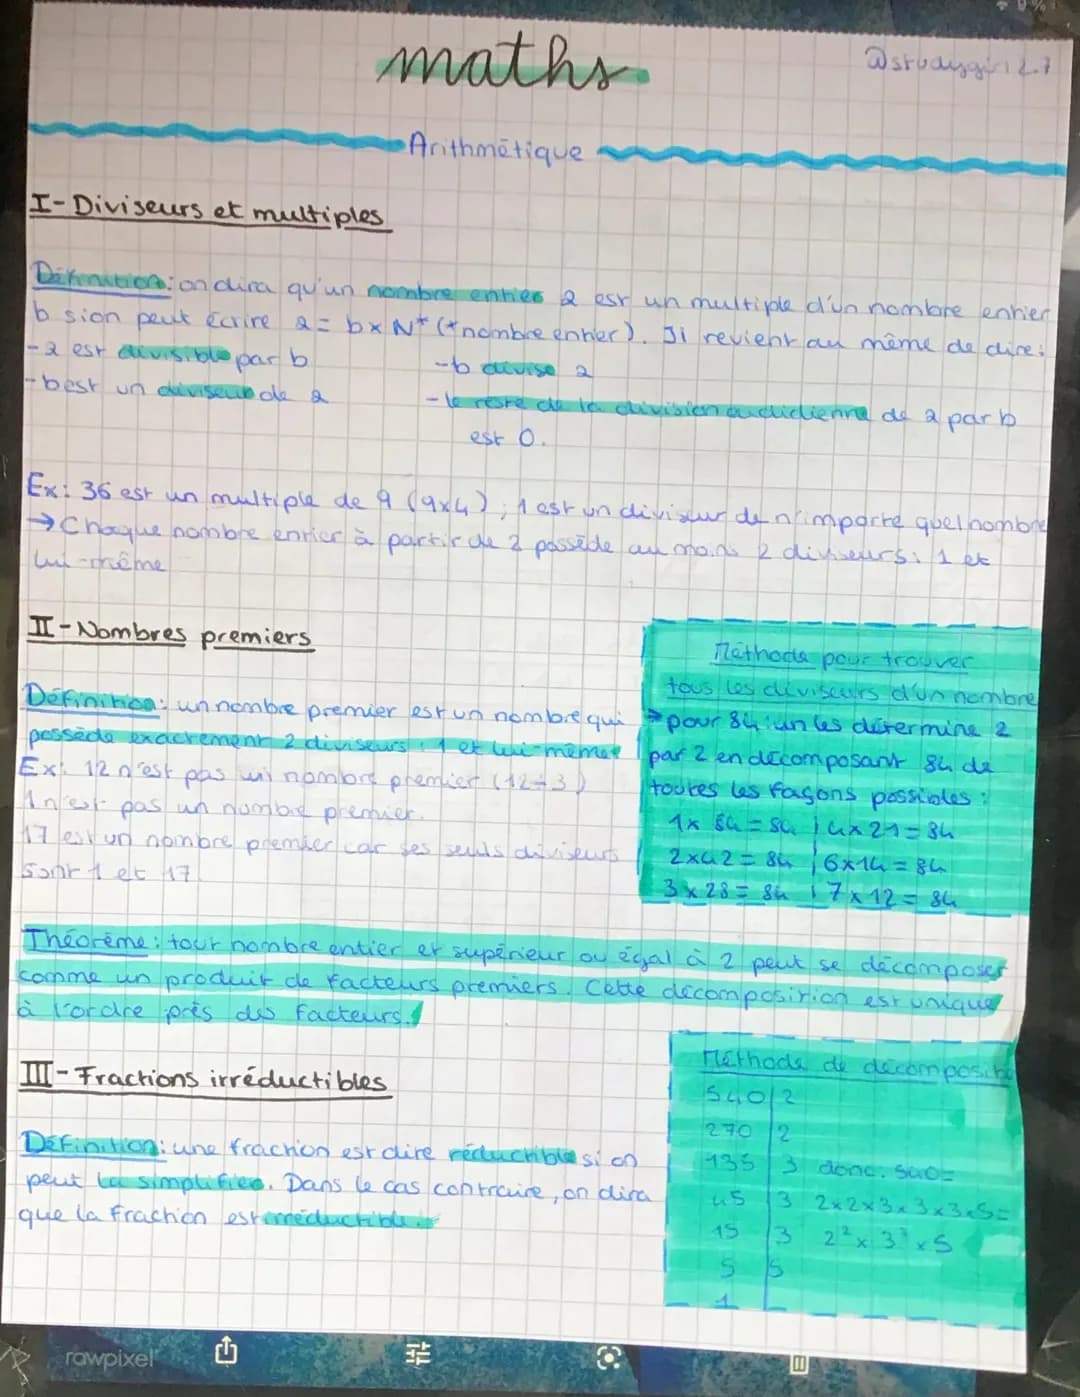 maths
@studygirl2.7
Arithmétique
I-Diviseurs et multiples
Définition: on dira qu'un nombre entier a est un multiple d'un nombre entier
b si on peut écrire a = b x N* (*nombre entier). Il revient au même de dire:
-a est divisible par b
-b divise a
-b est un diviseur de a
-le reste de la division euclidienne de a par b
est 0.
Ex: 36 est un multiple de 9 (9x4); 1 est un diviseur de n'importe quel nombre
→Chaque nombre entier à partir de 2 possède au moins 2 diviseurs: 1 et
lui-même
II-Nombres premiers
Définition: un nombre premier est un nombre qui
possède exactement 2 diviseurs: 1 et lui-même
Ex: 12 n'est pas un nombre premier (12÷3)
1 n'est pas un nombre premier.
17 est un nombre premier car ses seuls diviseurs
sont 1 et 17
Méthode pour trouver
tous les diviseurs d'un nombre
→pour 84: un les détermine 2
par 2 en décomposant 84 de
toutes les façons possibles:
1x 84 = 84 | 4x21=84
2x42 = 84 | 6x14 = 84
3x28 = 84 | 7x12 = 84
Théorème: tout nombre entier et supérieur ou égal à 2 peut se décomposer
comme un produit de facteurs premiers. Cette décomposition est unique
à l'ordre près des facteurs.
III-Fractions irréductibles
Définition: une fraction est dite réductible si on
peut la simplifier. Dans le cas contraire, on dira
que la fraction est irréductible.
Méthode de
540|2
270|2
135|3 donc: 540=
45|3 2x2x3x3x3x5=
15|3 2²x3³x5
5|5
1
rawpixel